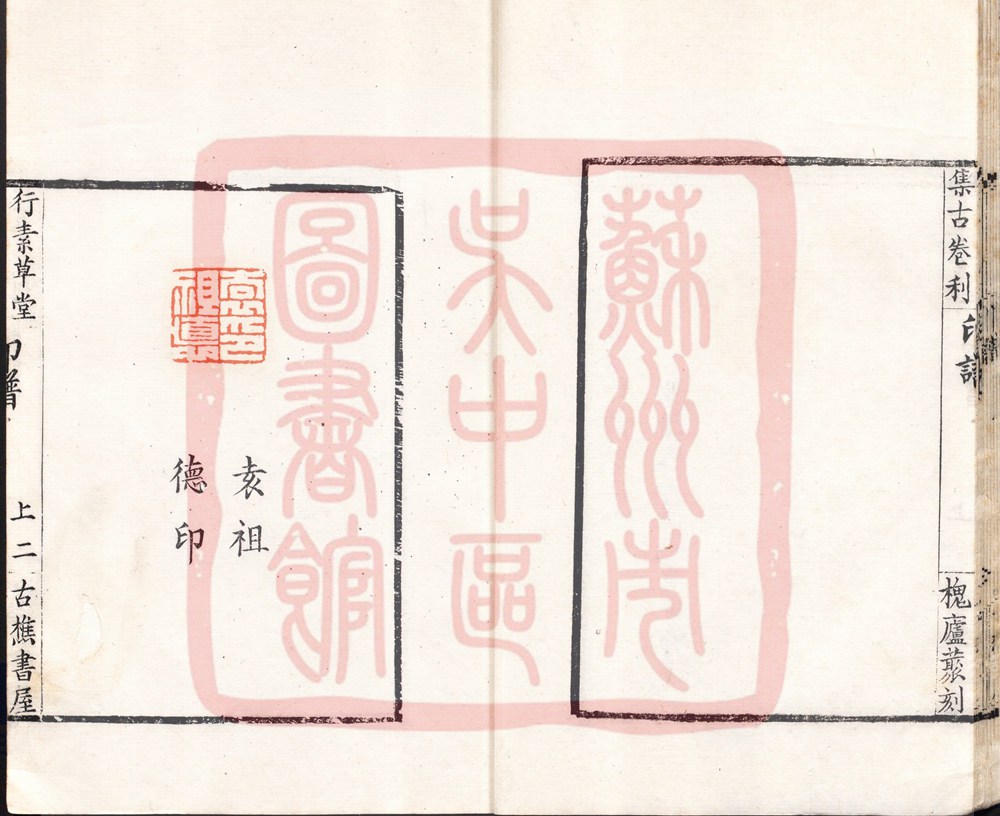 集古卷利
印譜
槐廬叢刻
蘇州市
吳中區
圖書館
袁祖
德印
行素草堂
印譜
上二
古樵書屋